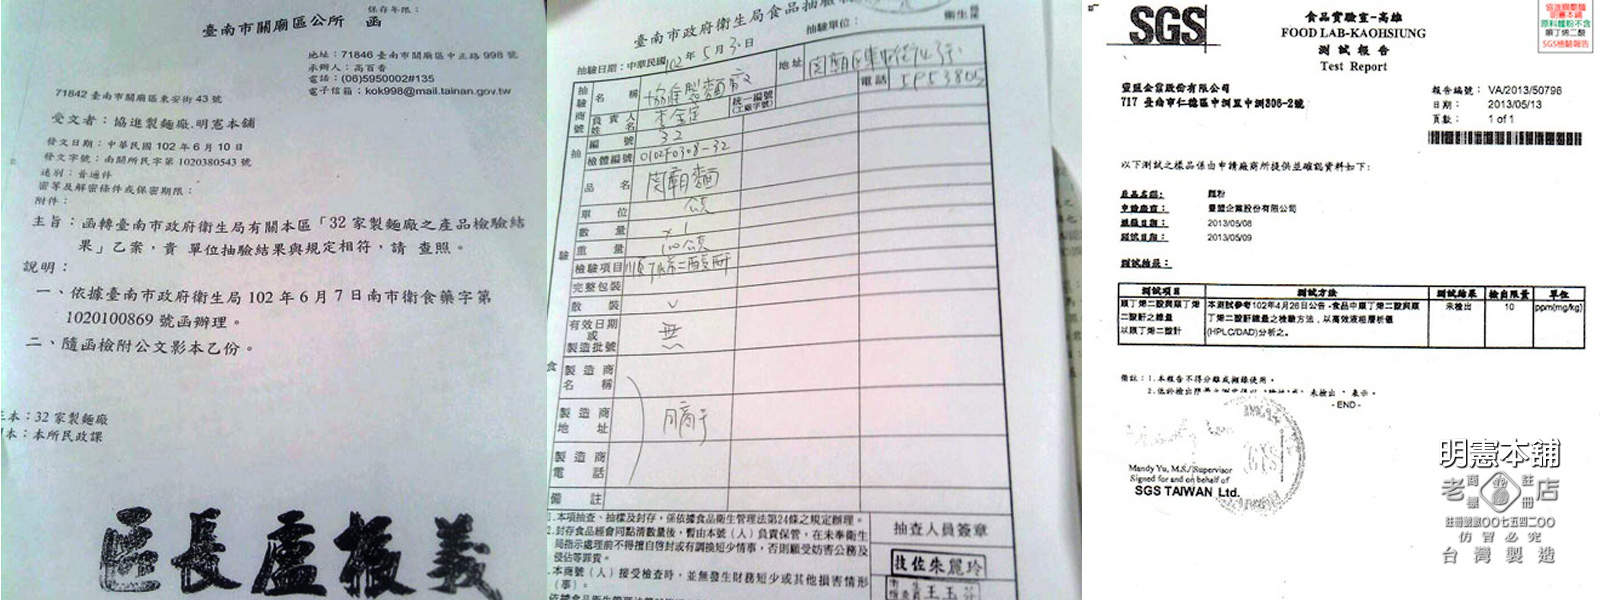 保存年限：
臺南市關廟區公所 函
地址：71846 臺南市關廟區中正路 998 號
承辦人：高百香
電話：(06)5950002#135
電子信箱：kok998@mail.tainan.gov.tw
71842 臺南市關廟區東安街 43 號
受文者：協進製麵廠.明憲本舖
發文日期：中華民國 102 年 6 月 10 日
發文字號：南關所民字第 1020380543 號
速別：普通件
密等及解密條件或保密期限：
附件：
主旨：函轉臺南市政府衛生局有關本區「32 家製麵廠之產品檢驗結
果」乙案，貴 單位抽驗結果與規定相符，請 查照。
說明：
一、依據臺南市政府衛生局 102 年 6 月 7 日南市衛食藥字第
1020100869 號函辦理。
二、隨函檢附公文影本乙份。
正本：32 家製麵廠
副本：本所民政課
區長盧振義
臺南市政府衛生局食品抽驗
抽驗單位：
衛生局
抽驗日期：中華民國102年5月30日
抽驗商號
名稱
協進製麵廠
地址
關廟區東安街43號
電話
5953805
負責人姓名
李金定
統一編號
(工廠字號)
編號
32
檢體編號
0102F0308-32
品名
關廟麵
單位
數量
×1
重量
檢驗項目
順丁烯二酸酐
完整包裝
散裝
V
有效日期
或
製造批號
無
製造商
名稱
製造商
地址
製造商
電話
備註
抽驗食
1.本項抽查、抽樣及封存，係依據食品衛生管理法第24條之規定辦理。
2.封存食品經會同點清數量後，暫由本號（人）負責保管，在未奉衛生
局指示處理前不得擅自啓封或有調換短少情事，否則願受妨害公務及
侵佔等罪責。
本商號（人）接受檢查時，並無發生財務短少或其他損害情形
（事）。
抽查人員簽章
技佐朱麗玲
SGS
食品實驗室-高雄
FOOD LAB-KAOHSIUNG
測試報告
Test Report
協進製麵舖
明憲本舖
原料麵粉不含
順丁烯二酸
SGS檢驗報告
豐盟企業股份有限公司
717 臺南市仁德區中洲里中洲806-2號
報告編號： VA/2013/50796
日期： 2013/05/13
頁數： 1 of 1
以下測試之樣品係由申請廠商所提供並確認資料如下：
產品名稱： 麵粉
申請廠商： 豐盟企業股份有限公司
收樣日期： 2013/05/08
測試日期： 2013/05/09
測試結果：
測試項目 測試方法 測試結果 檢出限量 單位
順丁烯二酸與順丁烯 本測試參考102年4月26日公告-食品中順丁烯二酸與順 未檢出 10 ppm(mg/kg)
二酸酐之總量 丁烯二酸酐總量之檢驗方法，以高效液相層析儀
以順丁烯二酸計 (HPLC/DAD)分析之。
備註：1.本報告不得分離或摘錄使用。
- END -
Mandy Yu, M.S./Supervisor
Signed for and on behalf of
SGS TAIWAN Ltd.
明憲本舖
老商標註冊店
註冊號數〇〇七五四二〇〇
仿冒必究
台灣製造